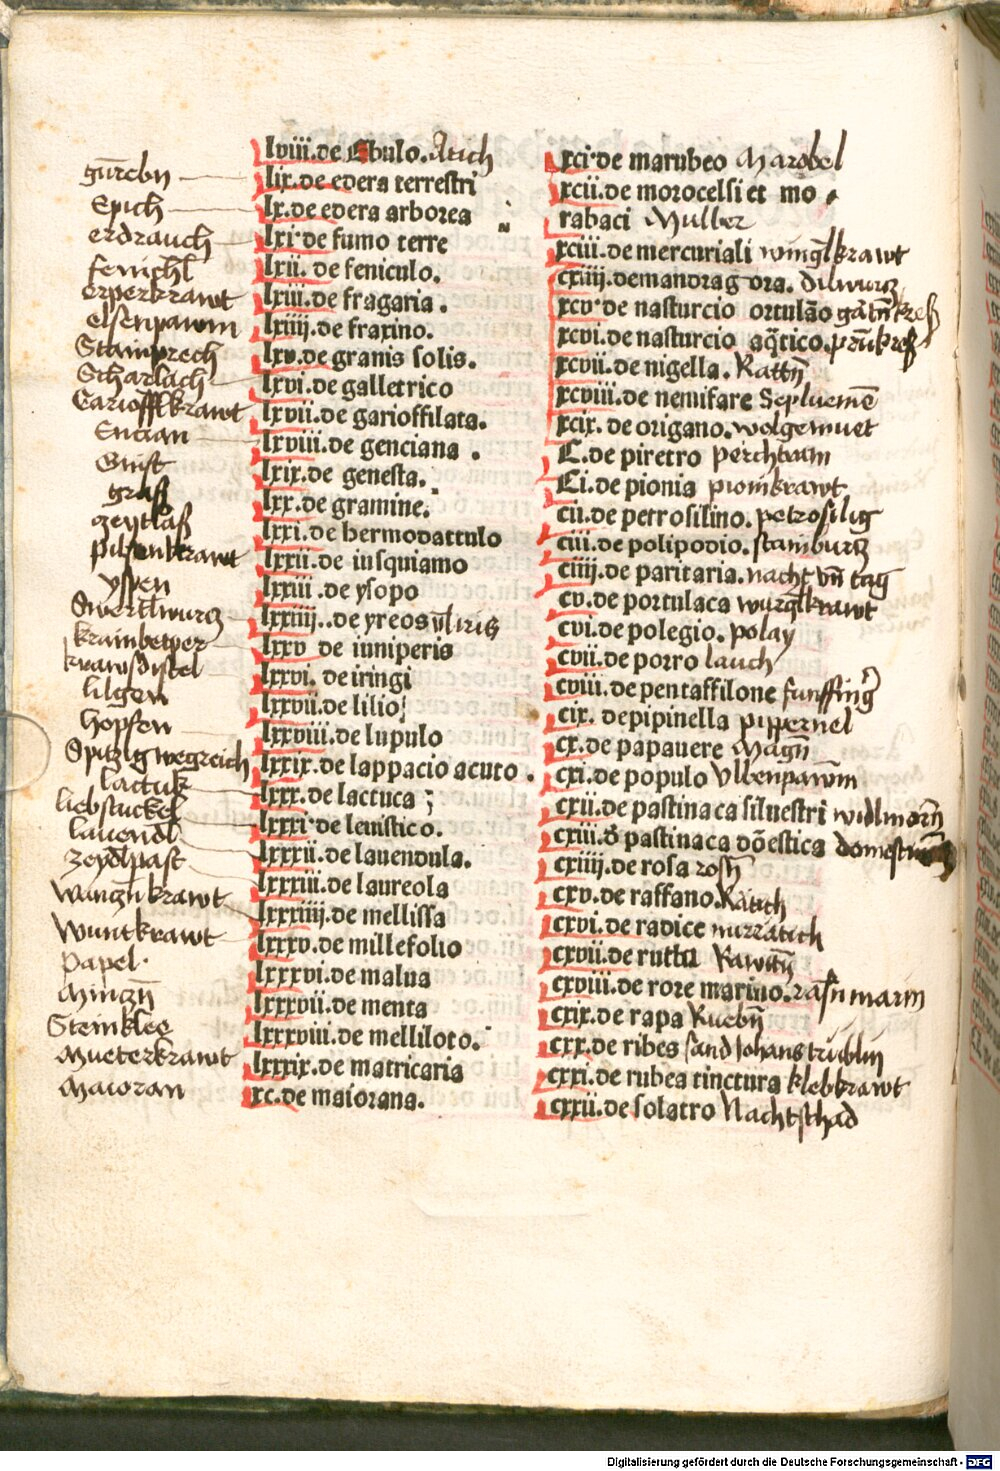 lviii.de Ebulo. Atich
gūrebn lix.de edera terrestri
Epich lx.de edera arborea
erdrauch lxi.de fumo terre
fenichl lxii. de feniculo.
erperkrawt lxiii.de fragaria.
elsenpawm lxiiii.de fraxino.
Stainprech lxv.de granis solis.
Scharlach lxvi.de galletrico
Gariofflkrawt lxvii.de garioffilata.
Encian lxviii.de genciana.
Ginst lxix.de genesta.
graß lxx.de gramine.
zeytlas lxxi.de hermodattulo
pilsenkrawt lxxii.de iusquiamo
yspen lxxiii.de ysopo
Swertlwurcz lxxiiii..de yreos vl iris
krainbetper lxxv de iuniperis
krawsdistel lxxvi. de iringi
lilgen lxxvii.de lilio
hopfen lxxviii.de lupulo
Spitzig wegreich lxxix.de lappacio acuto.
lactuk lxxx.de lactuca
liebstuckel lxxxi.de leuistico.
lauendl lxxxii.de lauendula.
zeydlpast lxxxiii.de laureola
lxxxiiii.de mellissa
Wuntkrawt lxxxv.de millefolio
Papel. lxxxvi.de malua
Minczn lxxxvii.de menta
Steinklee lxxxviii.de melliloto.
Mueterkrawt lxxxix.de matricaria
Maioran xc.de maiorana.
xci.de marubeo Marobel
xcii.de morocelsi et mo
rabaci Mulber
xciii.de mercuriali winglkrawt
cxiiij.demandrag ora.
xcv.de nasturcio ortulāo gatn kreß
xcvi.de nasturcio aq̄tico. prūkreß
xcvii.de nigella. Rattn
xcviii.de nemifare Sepluemē
xcix.de origano. wolgemuet
C.de piretro perchtram
Ci.de pionia pionikrawt
cii.de petrosilino. petrosilig
ciii.de polipodio. stainburcz
ciiij.de paritaria. nacht vn̄ tag
cv.de portulaca wurglkrawt
cvi.de polegio. polay
cvii.de porro lauch
cviii.de pentaffilone funffing
cix. depipinella pippernel
cx.de papauere Magn̄
cxi.de populo Albenpawm
cxii.de pastinaca siluestri wildmorn̄
cxiii.de pastinaca dōestica
cxiiij.de rosa rosn̄
cxv.de raffano. Rätich
cxvi.de radice
cxvii.de rutta Rawtn̄
cxviii.de rore marino. rasn marin
cxix.de rapa Ruebn̄
cxx.de ribes sand Johans trublin
cxxi.de rubea tinctura klebkrawt
cxxii.de solatro Nachtschad
Digitalisierung gefördert durch die Deutsche Forschungsgemeinschaft - DFG